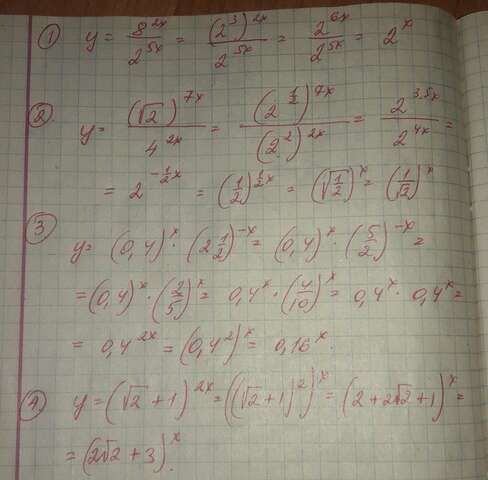 ① y = 8^{2x}/2^{5x} = (2^3)^{2x}/2^{5x} = 2^{6x}/2^{5x} = 2^x
② y = (√2)^{7x}/4^{2x} = (2^{1/2})^{7x}/(2^2)^{2x} = 2^{3,5x}/2^{4x} =
= 2^{-1/2x} = (1/2)^{1/2x} = (√(1/2))^x = (1/√2)^x
③
y = (0,4)^x · (2 1/2)^{-x} = (0,4)^x · (5/2)^{-x} =
= (0,4)^x · (2/5)^x = 0,4^x · (4/10)^x = 0,4^x · 0,4^x =
= 0,4^{2x} = (0,4^2)^x = 0,16^x.
④ y = (√2 + 1)^{2x} = ((√2 + 1)^2)^x = (2 + 2√2 + 1)^x =
= (2√2 + 3)^x.